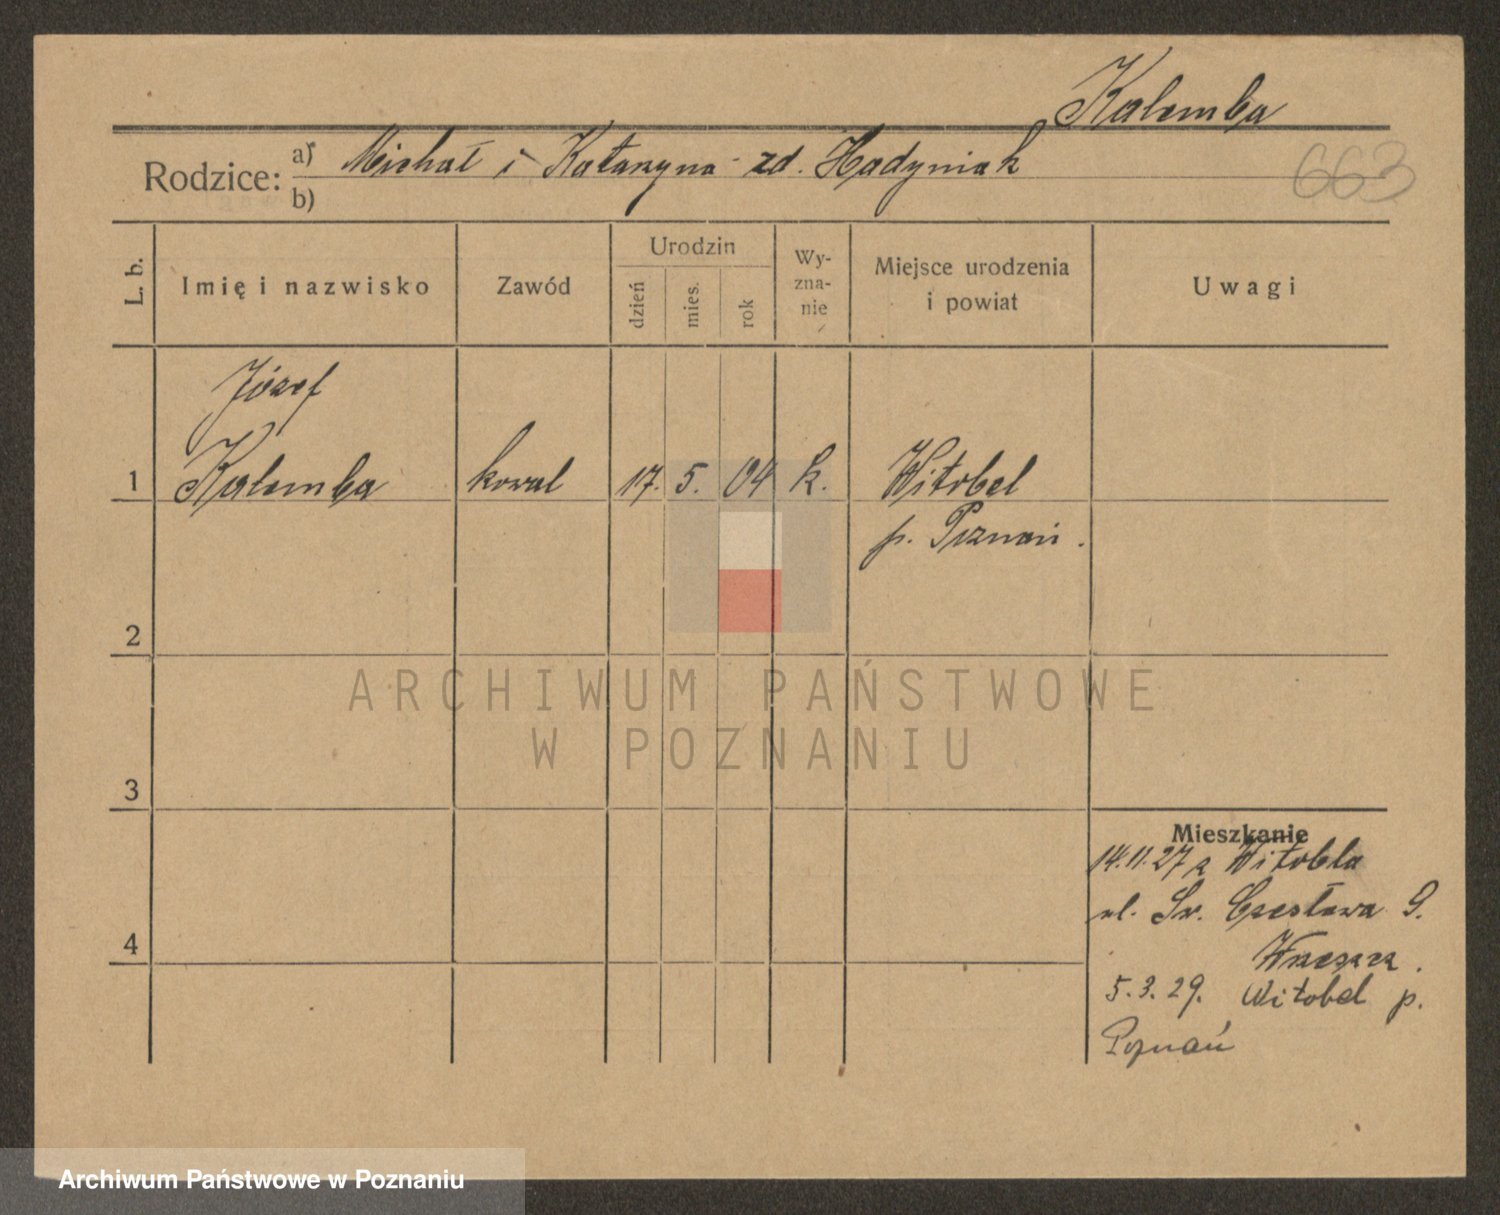 Kalemba
Rodzice: a) Michał i Katarzyna zd. Hadyniak
b)
663
L. b.
Imię i nazwisko
Zawód
Urodzin
dzień
mies.
rok
Wy-
zna-
nie
Miejsce urodzenia
i powiat
Uwagi
Józef
1 Kalemba kowal 17. 5. 04 k. Witobel
p. Poznań.
2
ARCHIWUM PAŃSTWOWE
W POZNANIU
3
Mieszkanie
14.11.27 z Witobla
ul. Św. Czesława 9.
4
5.3.29. Witobel p.
Poznań
Archiwum Państwowe w Poznaniu